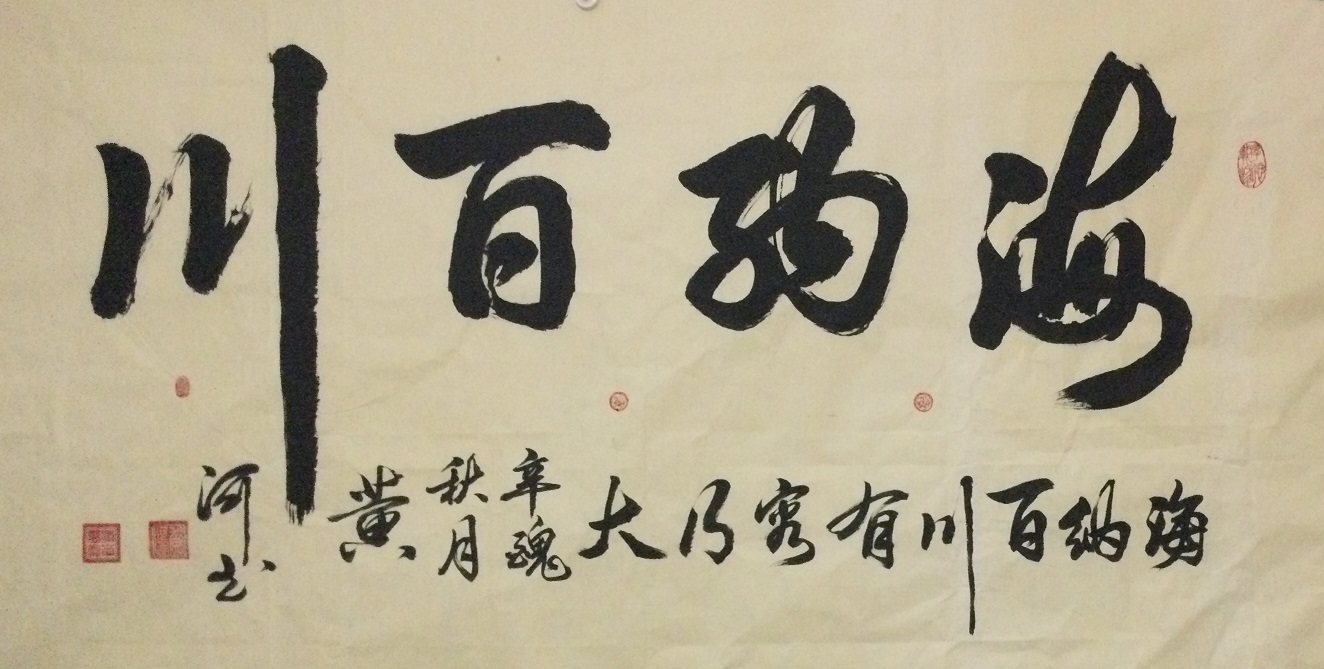 海纳百川
海纳百川有容乃大
辛魂
秋月
黄
河书